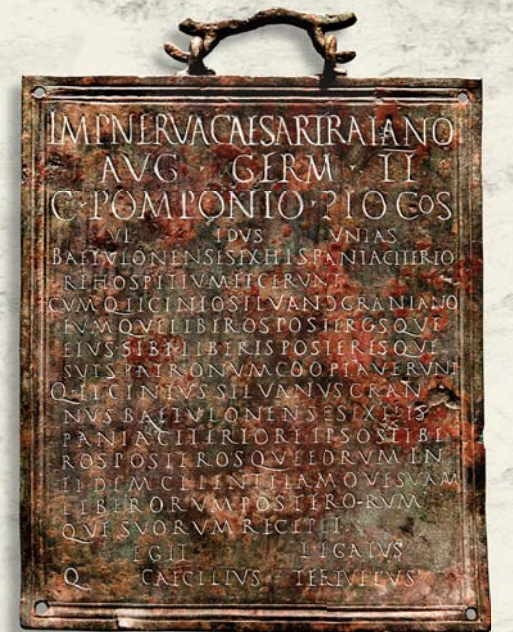 IMP NERVA CAESAR TRAIANO
AVG GERM · II
C · POMPONIO · PIO COS
VI IDVS IVNIAS
BAETVLONENSIS IX HISPANIA CITERIO
RE HOSPITIVM FECERVNT
CVM Q LICINIO SILVANO GRANIANO
EVMQVE LIBEROS POSTEROSQVE
EIVS SIBI LIBERIS POSTERISQVE
SVIS PATRONVM COOPTAVERVNT
Q LICINIVS SILVANVS GRAN
NVS BAETVLONENSES EX HIS
PANIA CITERIORE IPSOS LIBE
ROS POSTEROSQVE EORVM IN
FIDEM CLIENTELAMQVE SVAM
LIBERORVM POSTERO-RVM
QVE SVORVM RECEPIT
EGIT LEGATVS
Q CAECILIVS TERTVLLVS